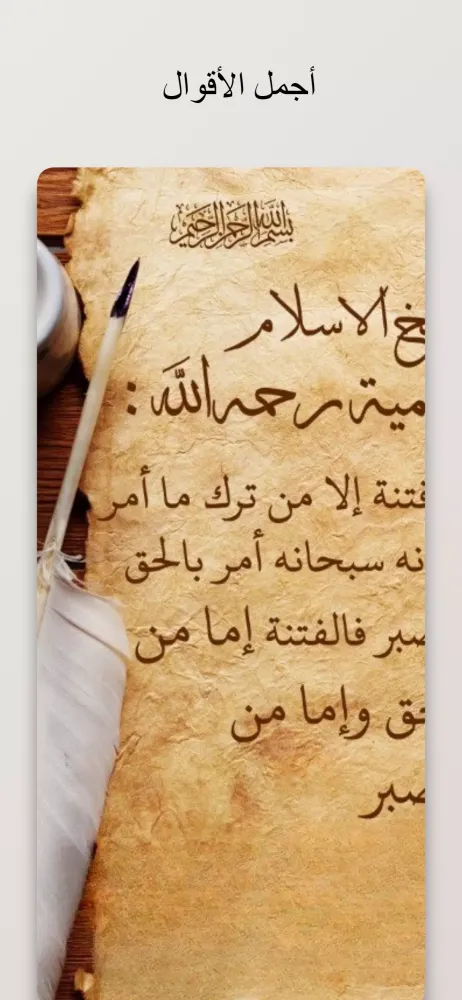 أجمل الأقوال
بسم الله الرحمن الرحيم
يخ الاسلام
مية رحمه الله :
فتنة إلا من ترك ما أمر
نه سبحانه أمر بالحق
صبر فالفتنة إما من
حق وإما من
صبر